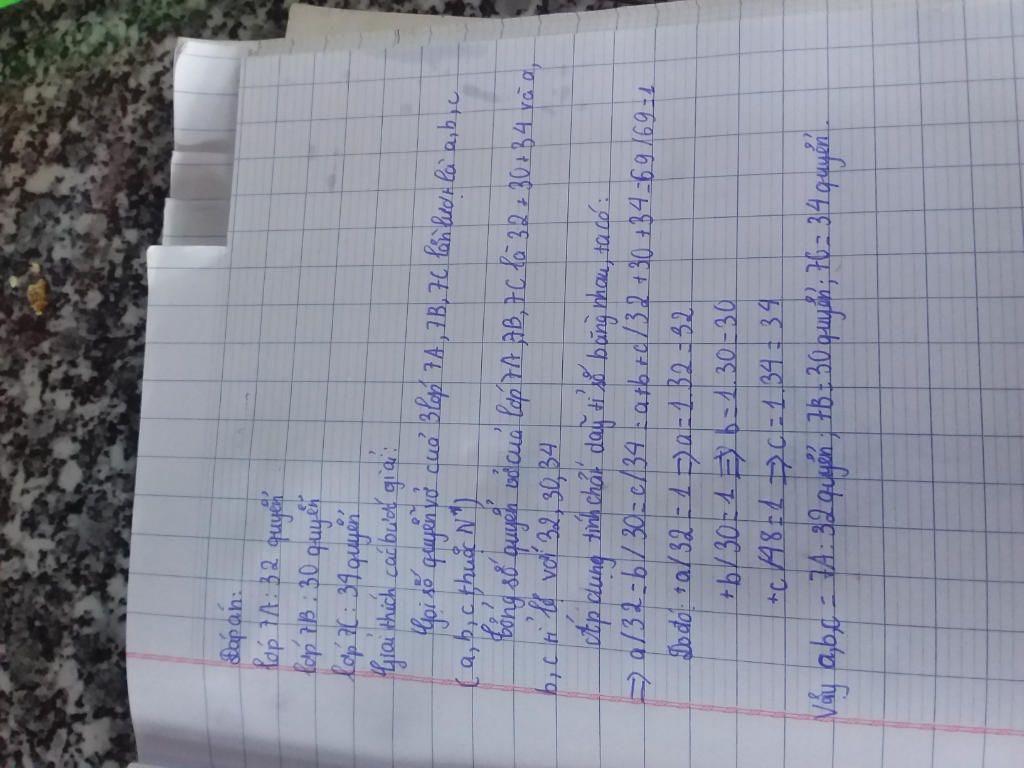 Đáp án:
lớp 7A: 32 quyển
lớp 7B: 30 quyển
lớp 7C: 34 quyển
Giải thích các bước giải:
Gọi số quyển vở của 3 lớp 7A, 7B, 7C lần lượt là a, b, c
(a, b, c thuộc N*)
Tổng số quyển vở của lớp 7A, 7B, 7C là 32 + 30 + 34 và a,
b, c tỉ lệ với 32, 30, 34
Áp dụng tính chất dãy tỉ số bằng nhau, ta có:
=> a/32 = b/30 = c/34 = a+b+c/32+30+34=69/69=1
Do đó: +a/32 = 1 => a = 1.32 = 32
+b/30 = 1 => b = 1.30 = 30
+c/48 = 1 => c = 1.34 = 34
Vậy a,b,c = 7A: 32 quyển; 7B = 30 quyển; 7C = 34 quyển.